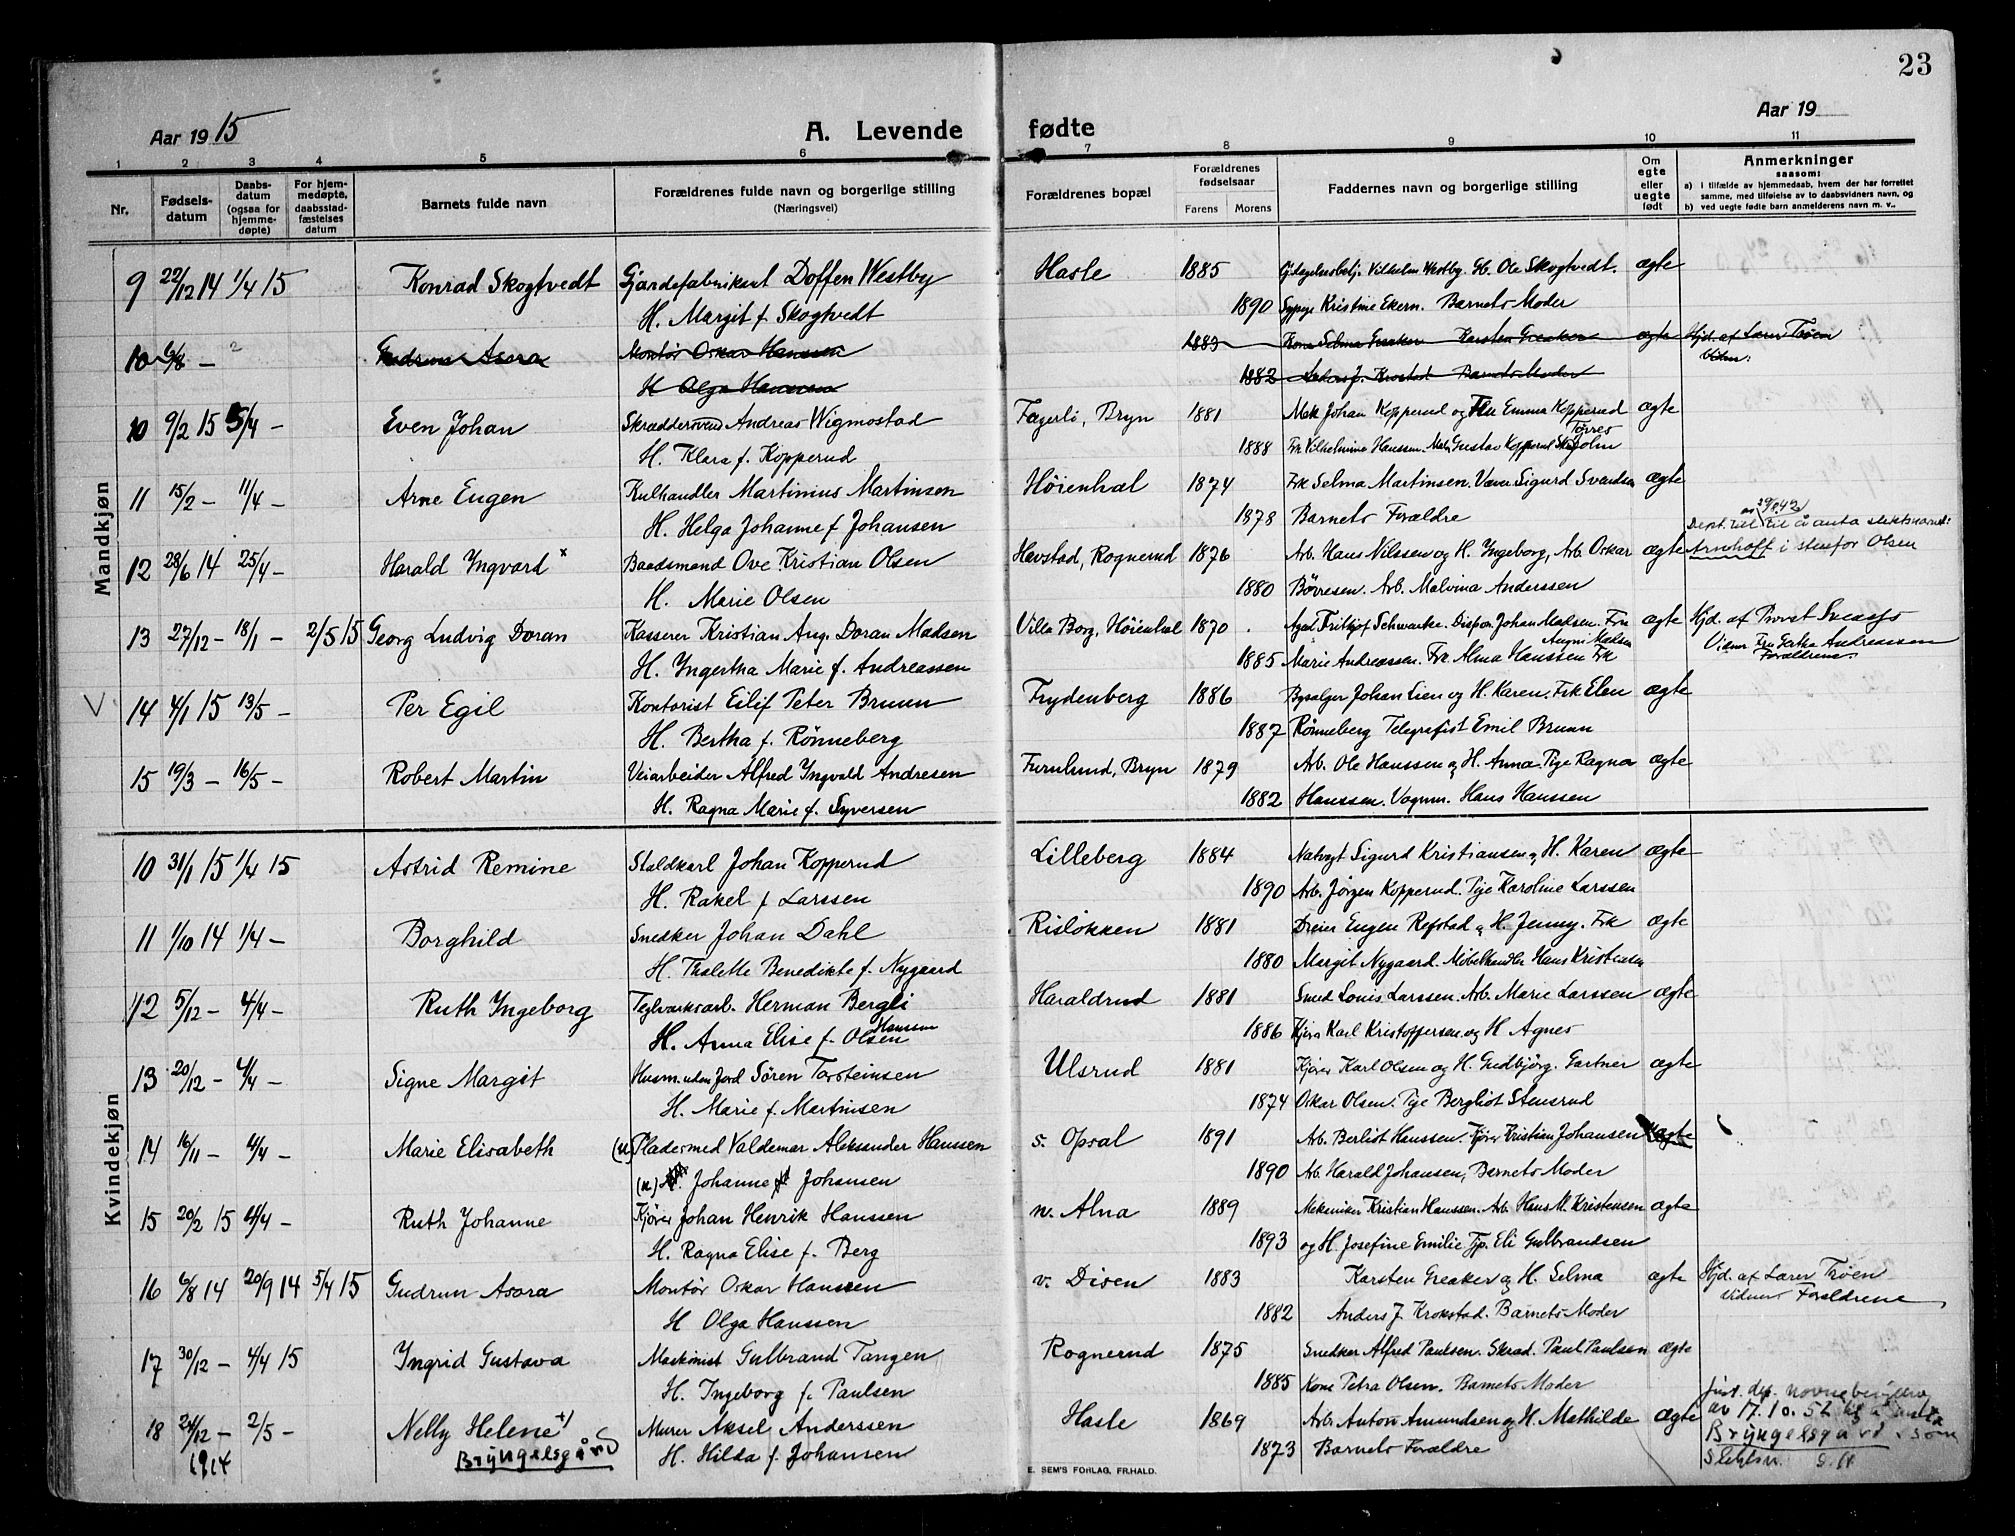 23
Aar 1915
A. Levende fødte
Aar 19
1 2 3 4 5 6 7 8 9 10 11
Nr.
Fødselsdatum
Daabsdatum (ogsaa for hjemmedøpte)
For hjemmedøpte, daabsstadfæstelses datum
Barnets fulde navn
Forældrenes fulde navn og borgerlige stilling (Næringsvei)
Forældrenes bopæl
Forældrenes fødselsaar
Farens Morens
Faddernes navn og borgerlige stilling
Om egte eller uegte født
Anmerkninger saasom:
a) i tilfælde av hjemmedaab, hvem der har forrettet samme, med tilføielse av to daabsvidners navn, og
b) ved uegte fødte barn anmelderens navn m. v..
Mandkjøn
9 22/12 14 1/4 15 Konrad Skogtvedt Gjærdefabrikant Doffen Westby Hasle 1885 Vilhelm Westby. Gb. Ole Skogtvedt. ægte
H. Margit f. Skogtvedt 1890 Sypige Kristine Ekern. Barnets Moder
10 6/8 — Gudrun Asora Montør Oskar Hanssen 1883 Kone Selma Greaker Karsten Greaker ægte Hjd. af Lærer Trøen
H Olga Hanssen 1882 Anders J. Krostad Barnets Moder Vidn:
10 9/2 15 5/4 — Even Johan Skræddersvend Andreas Wigmostad Fagerli, Bryn 1881 Mek Johan Kopperud og Fru Emma Kopperud ægte
H. Klara f. Kopperud 1888 Frk Vilhelmine Hanssen. Mek Gustav Kopperud Torres Skajolm
11 15/2 — 11/4 — Arne Eugen Kulhandler Martinius Martinsen Høienhal 1874 Frk Selma Martinsen. Væver Sigurd Svendsen ægte
H. Helga Johanne f. Johansen 1878 Barnets Forældre
12 28/6 14 25/4 — Harald Ingvard x Baadsmand Ove Kristian Olsen Havstad, Rognerud 1876 Arb. Hans Nilssen og H. Ingeborg, Arb. Oskar ægte Dept. till. til å anta slektsnavnet: Arnhoff i stedfor Olsen
H. Marie Olsen 1880 Børresen. Arb. Malvina Anderssen
13 27/12 — 18/1 — 2/5 15 Georg Ludvig Doran Kasserer Kristian Aug. Doran Madsen Villa Borg, Høienhal 1870 Agent Fritjof Schwartz. Dispon. Johan Madsen. Fru ægte Hjd. af Provst
H. Yngertha Marie f. Andreassen 1885 Marie Andreassen. Frk. Alma Hanssen Frk Vidner Fru Andreassen Forældrene
14 4/1 15 13/5 — Per Egil Kontorist Eilif Peter Bruun Frydenberg 1886 Bysælger Johan Lien og H. Karen. Frk Elen ægte
H. Bertha f. Rønneberg 1887 Rønneberg Telegrafist Emil Bruun
15 19/3 — 16/5 — Robert Martin Veiarbeider Alfred Yngvald Andresen Furulund, Bryn 1879 Arb. Ole Hanssen og H. Anna. Pige Ragna ægte
H. Ragna Marie f. Syversen 1882 Hanssen. Vognm. Hans Hanssen
Kvindekjøn
10 31/1 15 1/4 15 Astrid Remine Staldkarl Johan Kopperud Lilleberg 1884 Natvagt Sigurd Kristiansen og H. Karen ægte
H. Rakel f Larssen 1890 Arb. Jørgen Kopperud. Pige Karoline Larssen
11 1/10 14 1/4 — Borghild Snedker Johan Dahl Risløkken 1881 Dreier Eugen Refstad og H. Jenny. Frk ægte
H. Thalette Benedikte f. Nygaard 1880 Margit Nygaard. Møbelhandler Hans Kristensen
12 5/12 — 4/4 — Ruth Yngeborg Teglverksarb. Herman Bergli Haraldrud 1881 Smed Louis Larssen. Arb. Marie Larssen ægte
H. Anna Elise f. Olsen Hanssen 1886 Kjører Karl Kristoffersen og H Agnes
13 20/12 — 4/4 — Signe Margit Husm. uden Jord Søren Torsteinsen Ulsrud 1881 Kjører Karl Olsen og H. Gudbjørg. Gartner ægte
H. Marie f. Martinsen 1874 Oskar Olsen. Pige Bergliot Stensrud
14 16/11 — 4/4 — Marie Elisabeth (u) Pladesmed Valdemar Aleksander Hanssen s. Opsal 1891 Arb. Berliot Hanssen. Kjører Kristian Johansen uægte
(u) Johanne Johansen 1890 Arb. Harald Johansen, Barnets Moder
15 20/2 15 4/4 — Ruth Johanne Kjører Johan Henrik Hanssen n. Alna 1889 Mekaniker Kristian Hanssen. Arb. Hans M. Kristensen ægte
H. Ragna Elise f. Berg 1893 og H. Josefine Emilie Tjp. Eli Gulbrandsen
16 6/8 14 20/9 14 5/4 15 Gudrun Asora Montør Oskar Hanssen v. Disen 1883 Karsten Greaker og H. Selma ægte Hjd. af Lærer Trøen
H Olga Hanssen 1882 Anders J. Krokstad. Barnets Moder Vidner Forældrene
17 30/12 — 4/4 15 Yngrid Gustava Maskinist Gulbrand Tangen Rognerud 1875 Snedker Alfred Paulsen. Skrad. Paul Paulsen ægte
H. Ingeborg f. Paulsen 1885 Kone Petra Olsen. Barnets Moder
18 24/12 — 2/5 — Nelly Helene +) Murer Aksel Anderssen Hasle 1869 Arb. Anton Amundsen og H. Mathilde ægte Just. dep. navnebevilling av 17.10.52 til å anta Bryngelsgård som Slektsn.
1914 Bryngelsgård H. Hilda f. Johansen 1873 Barnets Forældre
E. SEM'S FORLAG, FR.HALD.